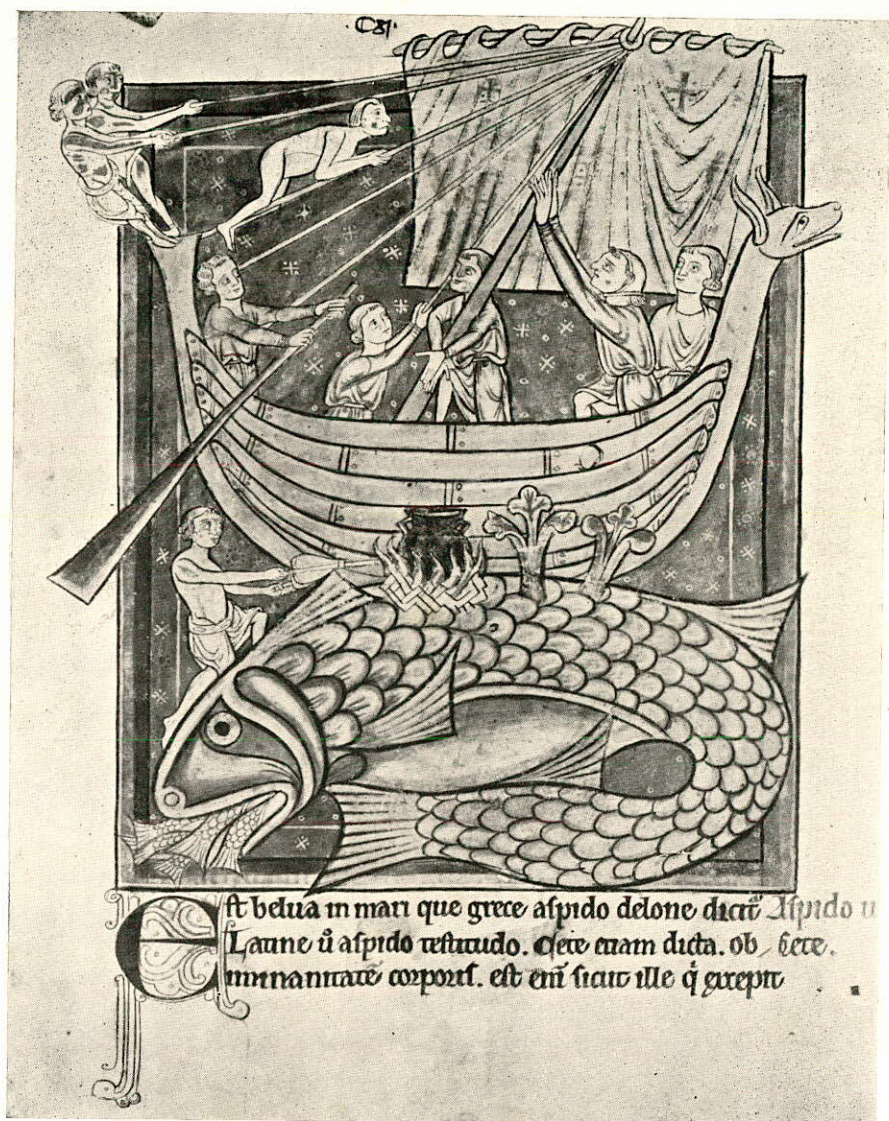 Est belua in mari que grece aspido delone dicit᷑ Aspido
Latine ů aspido testitudo. Cete etiam dicta. ob cete.
inmanitatē corporis. est eni᷑ sicut ille q̇ excepit